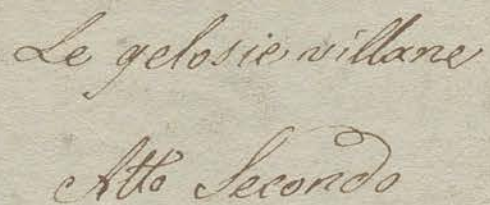 Le gelosie villane
Atto Secondo